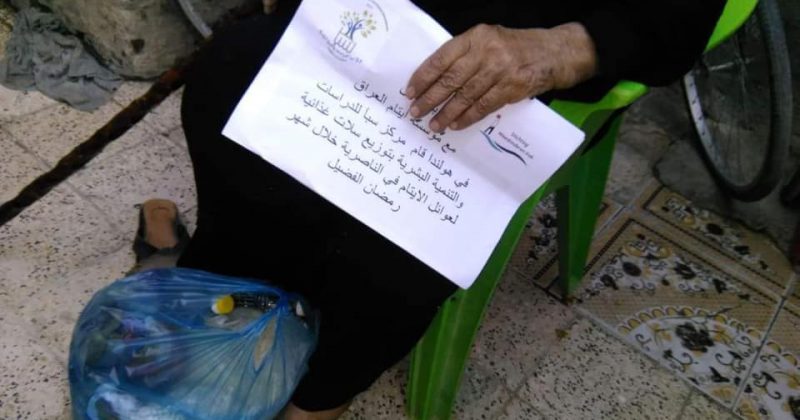 مع مؤسسة ايتام العراق
في هولندا قام مركز سبا للدراسات
والتنمية البشرية بتوزيع سلات غذائية
لعوائل الايتام في الناصرية خلال شهر
رمضان الفضيل
Stichting